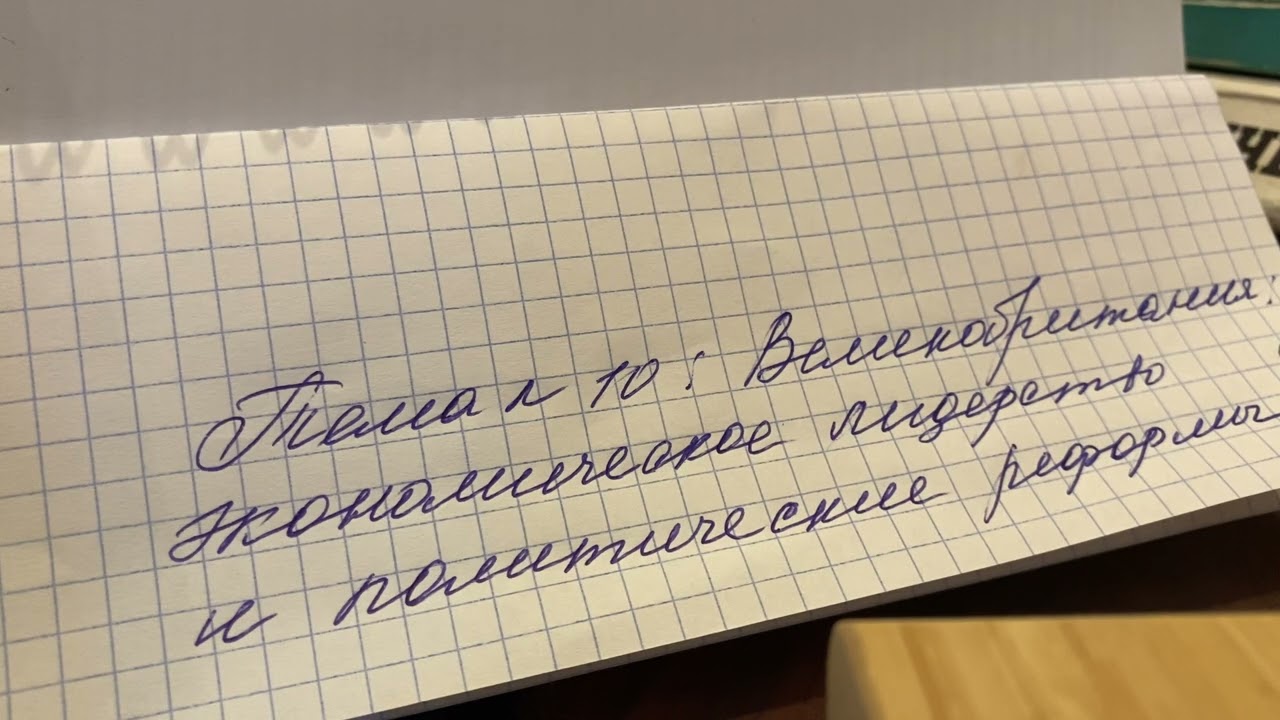 Тема n 10: Великобритания:
экономическое лидерство
и политические реформы